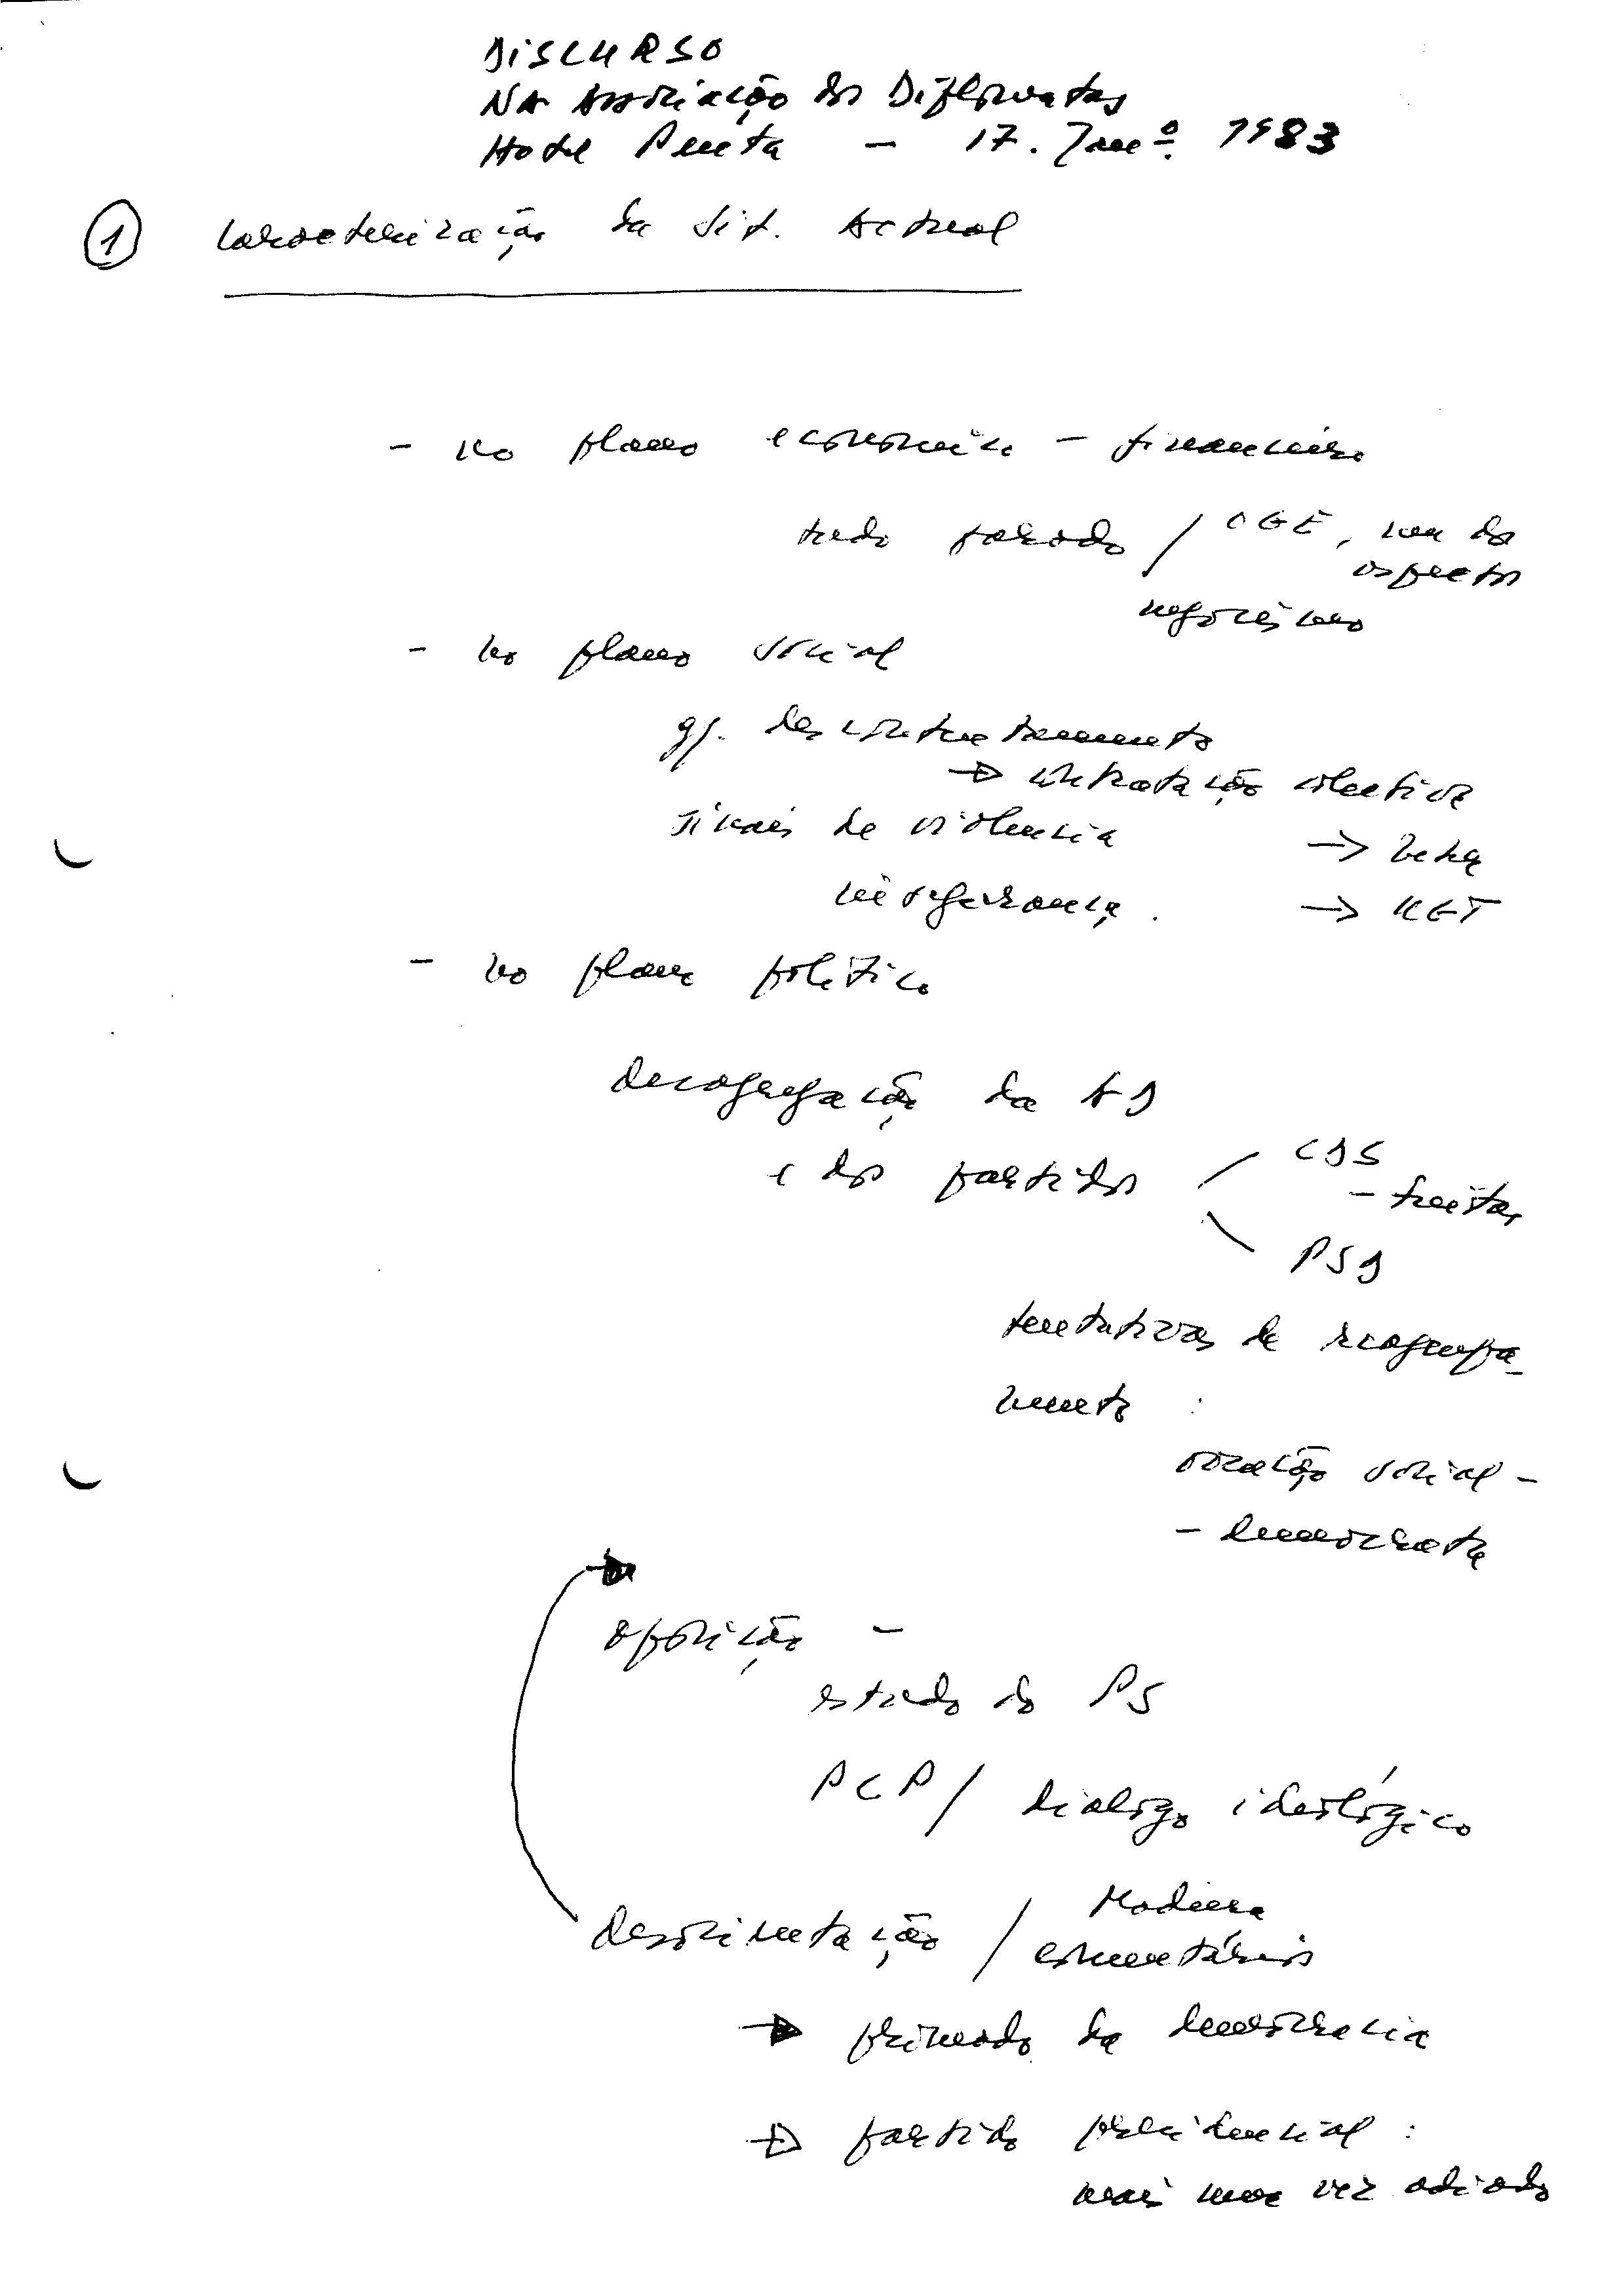 DISCURSO
NA Associação dos Diplomatas
Hotel Penta - 17. Janº. 1983
1 Caracterização da Sit. Actual
- no plano económico - financeiro
tudo parado / OGE, um dos
aspectos
negocismo
- no plano social
gr. descontentamento
→ contratação colectiva
sinais de violencia →
insegurança. → UGT
- no plano politico
desagregação da AD
e dos partidos CDS
- Freitas
PSD
tentativas de reagrupa-
mento :
social -
- democrata
oposição -
estado do PS
PCP / dialogo ideológico
desorientação / Madeira
comentários
→ primado da democracia
→ partido presidencial :
mais uma vez adiado